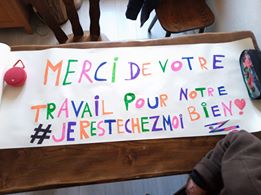 MERCI DE VOTRE
TRAVAIL POUR NOTRE
BIEN!
#JERESTECHEZMOI